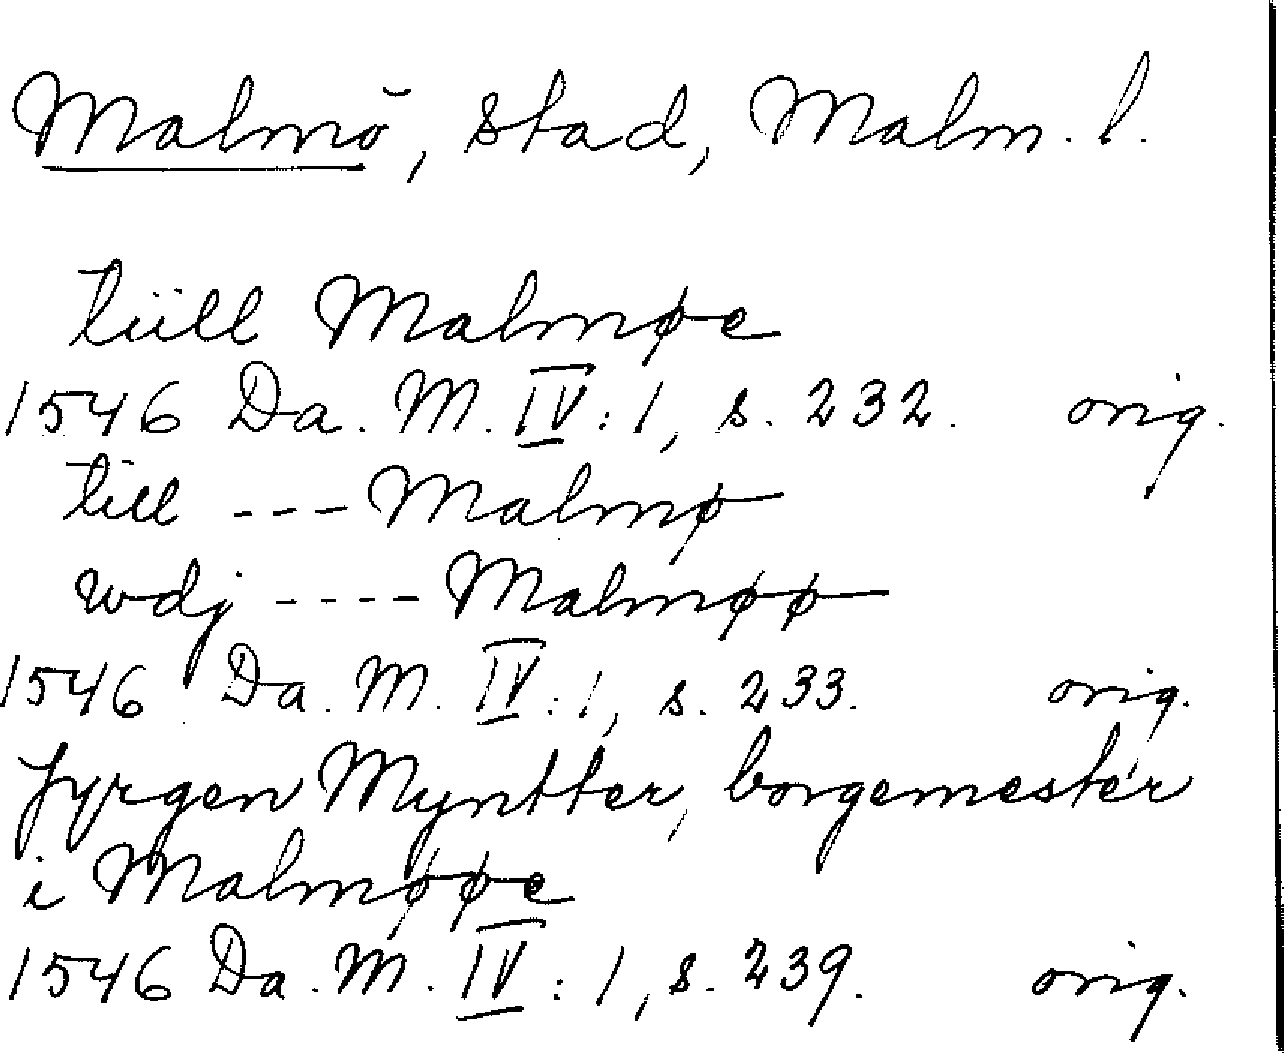 Malmö, stad, Malm. l.
tiill Malmøe
1546 Da. M. IV:1, s. 232. orig.
till --- Malmø
wdj ---- Malmøø
1546 Da. M. IV:1, s. 233. orig.
Jyrgen Myntter, borgemester
i Malmøøe
1546 Da. M. IV:1, s. 239. orig.